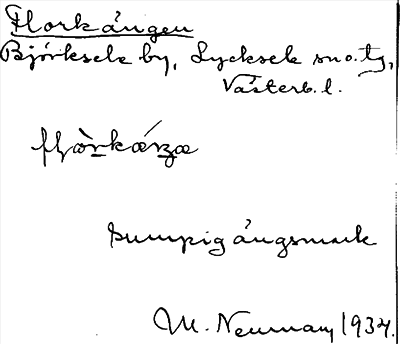 Florkängen
Björksele by, Lycksele sn o. tg,
Västerb. l.
sumpig ängsmark
M. Neuman, 1934.